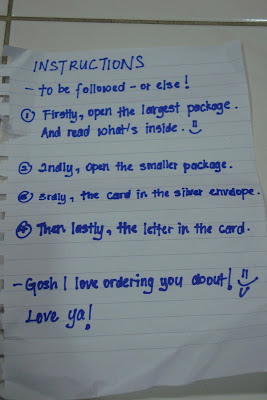 INSTRUCTIONS
- to be followed - or else!
① Firstly, open the largest package.
And read what's inside.
② 2ndly, open the smaller package.
③ 3rdly, the card in the silver envelope.
④ Then lastly, the letter in the card.
- Gosh I love ordering you about!
Love ya!